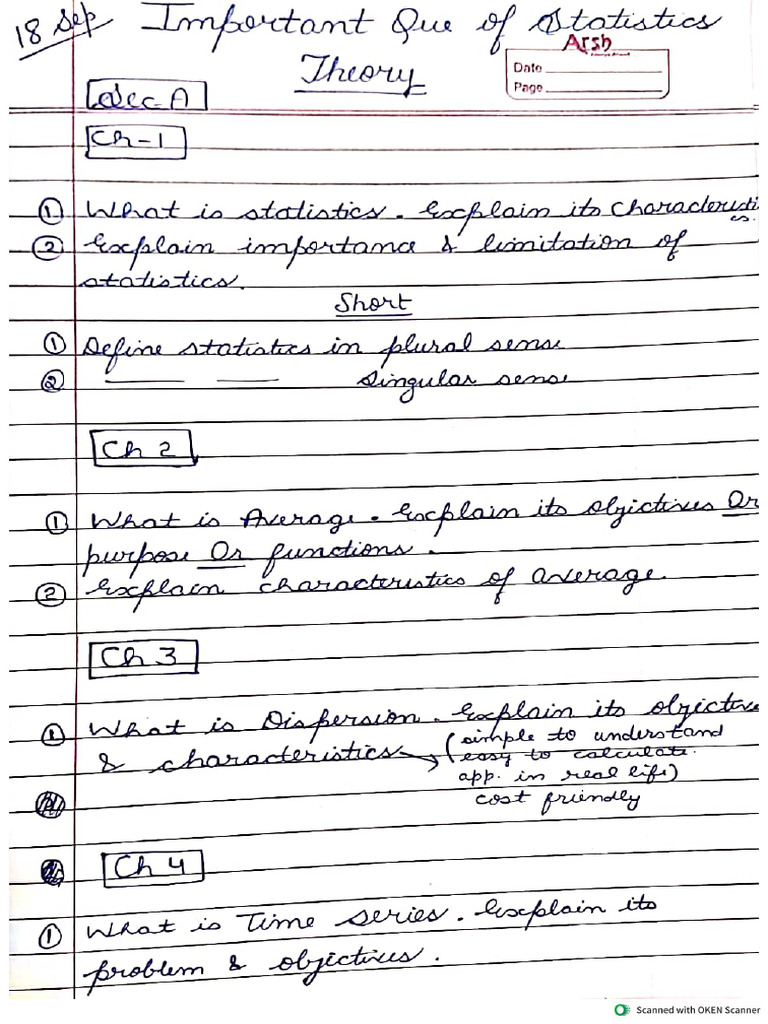 18 Sep Important Que of Statistics
Arsh
Theory
Date
Page
Sec-A
Ch-1
① What is statistics. Explain its characteristics.
② Explain importance & limitation of
statistics.
Short
① Define statistics in plural sense
② —— —— Singular sense
Ch 2
① What is Average. Explain its objectives Or
purpose Or functions.
② Explain characteristics of average.
Ch 3
① What is Dispersion. Explain its objective
& characteristics → (simple to understand
easy to calculate.
app. in real life)
cost friendly
Ch 4
① What is Time series. Explain its
problem & objectives.
Scanned with OKEN Scanner